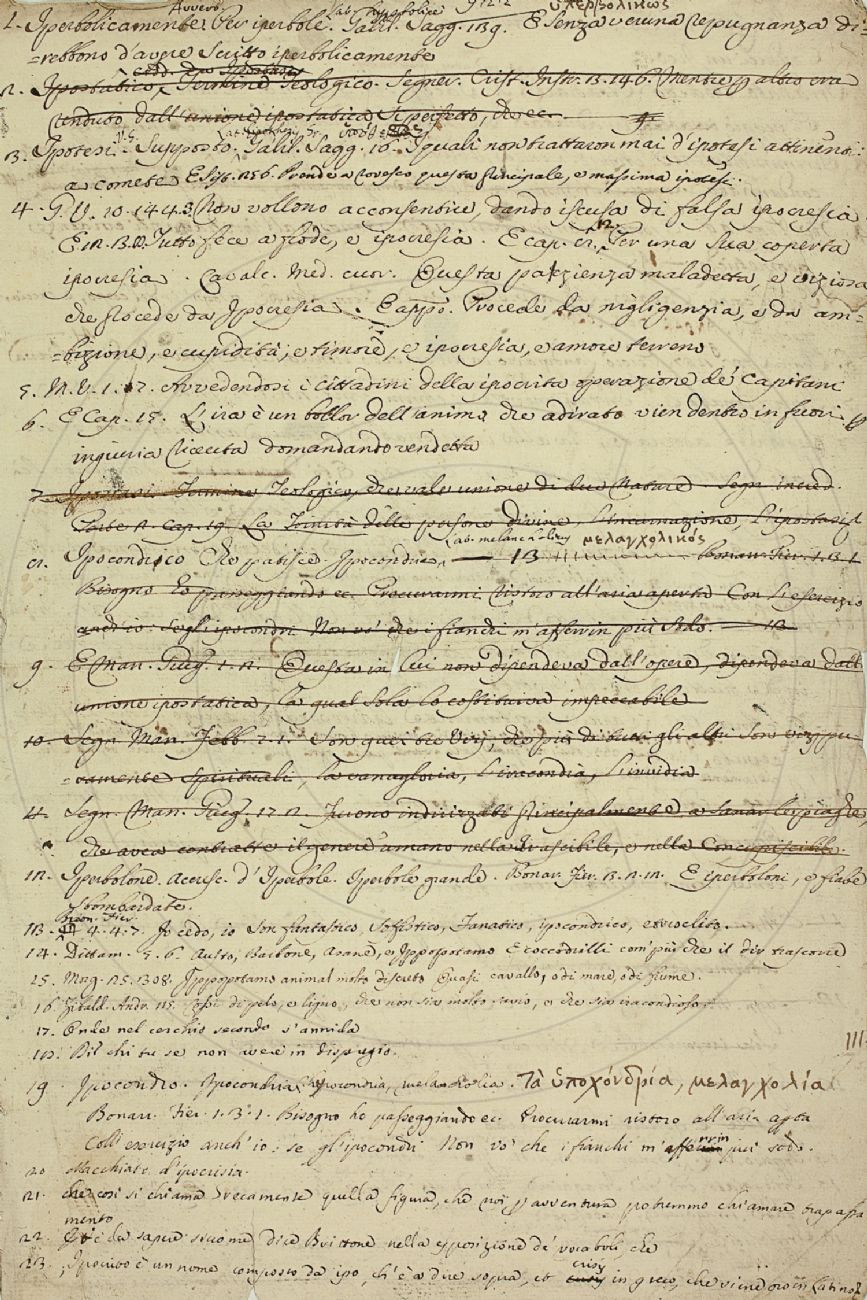 Avverb. Lat. hyperbolice ὑπερβολικῶς
1. Iperbolicamente. Per iperbole. Galil. Sagg. 139. E senza veruna repugnanza di-
=rebbono d'avere scritto iperbolicamente
2. Ipostatico. Termine Teologico. Segner. Crist. Instr. 13. 146. Mentre altro era
dall'unione ipostatica perfetto, che ec.
3. Ipotesi. Supposto. Galil. Sagg. 16. I quali non trattaron mai d'ipotesi attinenti
a comete E Sist. 256. Prende a rovescio questa principale, e massima ipotesi.
4. G. V. 10. 144. 3. Non vollono acconsentire, dando iscusa di falsa ipocresia
E 12. 13. Tutto fece a frode, e ipocresia. E cap. Per una sua coperta
ipocresia. Cavalc. Med. cuor. Questa pazzienza maladetta, e viziosa
che procede da Ipocresia. E appo. Procede da nigligenzia, e da am-
=bizione, e cupidità, e timore, e ipocresia, e amore terreno
5. M. V. 1. 17. Avvedendosi i cittadini della ipocrita operazione de' Capitani
6. E Cap. 15. L'ira è un bollor dell'animo che adirato vien dentro in fuori p
ingiuria ricevuta domandando vendetta
7. Ipostasi. Termine Teologico, che vale unione di due Nature. Segn. incred.
Parte 2. cap. 19. La Trinità delle persone divine, l'incarnazione, l'ipostasi
Lat. melancholicus μελαγχολικός
8. Ipocondrico Che patisce Ipocondria. 13 Bonar. Fier. 1. 3. 1
Bisogno ho passeggiando ec. Procurarmi ristoro all'aria aperta Con l'esercizio
anch'io: se gl'ipocondri Non vo' che i fianchi m'afferrin più sodo.
9. E Man. Giug. 1. 2. Questa in lui non dipendeva dall'opere, dipendeva dall'
unione ipostatica, la qual sola lo costituiva impeccabile
10. Segn. Man. Febb. 2. 1. Son quei tre vizj, che più di tutti gli altri son vizj pu-
=ramente spirituali, la vanagloria, l'iracondia, l'invidia
11. Segn. Man. Giug. 17. 2. Furono indirizzati principalmente a sanar le piaghe,
che avea contratte il genere umano nella Irascibile, e nella Concupiscibile.
12. Iperbolone. Accresc. d'Iperbole. Iperbole grande. Bonar. Fier. 3. 2. 12. E iperboloni, e fiabe
sbombardate.
Buon. Fier.
13. 4. 4. 7. Io cedo, io son fantastico, sofistico, fanatico, ipocondrico, eteroclito.
14. Dittam. 5. 6. Austo, Barbone, Arane, e Ippopotamo E coccodrilli com' più che il dir trascorre
15. Morg. 25. 308. Ippopotamo animal molto discreto Quasi cavallo, o di mare, o di fiume.
16. Zibald. Andr. 115. di pelo, e ligno, che non sia molto savio, e che sia iracondioso.
17. Onde nel cerchio secondo s'annida
18. Di chi tu se non avere in dispregio.
III.
19. Ipocondro. Ipocondria. Lat. hypocondria, melancholia. Τὰ ὑποχόνδρια, μελαγχολία
Bonar. Fier. 1. 3. 1. Bisogno ho passeggiando ec. Procurarmi ristoro all'aria apta
Coll'esercizio anch'io: se gl'ipocondri Non vo' che i fianchi m'afferrin più sodo.
20. Macchiato d'ipocrisia.
21. Che così si chiama Grecamente quella figura, che noi p avventura potremmo chiamare trapassa
mento
22. è da sapere siccome dice Brittone nella esposizione de' vocaboli, che
23. Ipocrito è un nome composto da ipo, ch'è a dire sopra, et crisis in greco, che viene oro in Latino